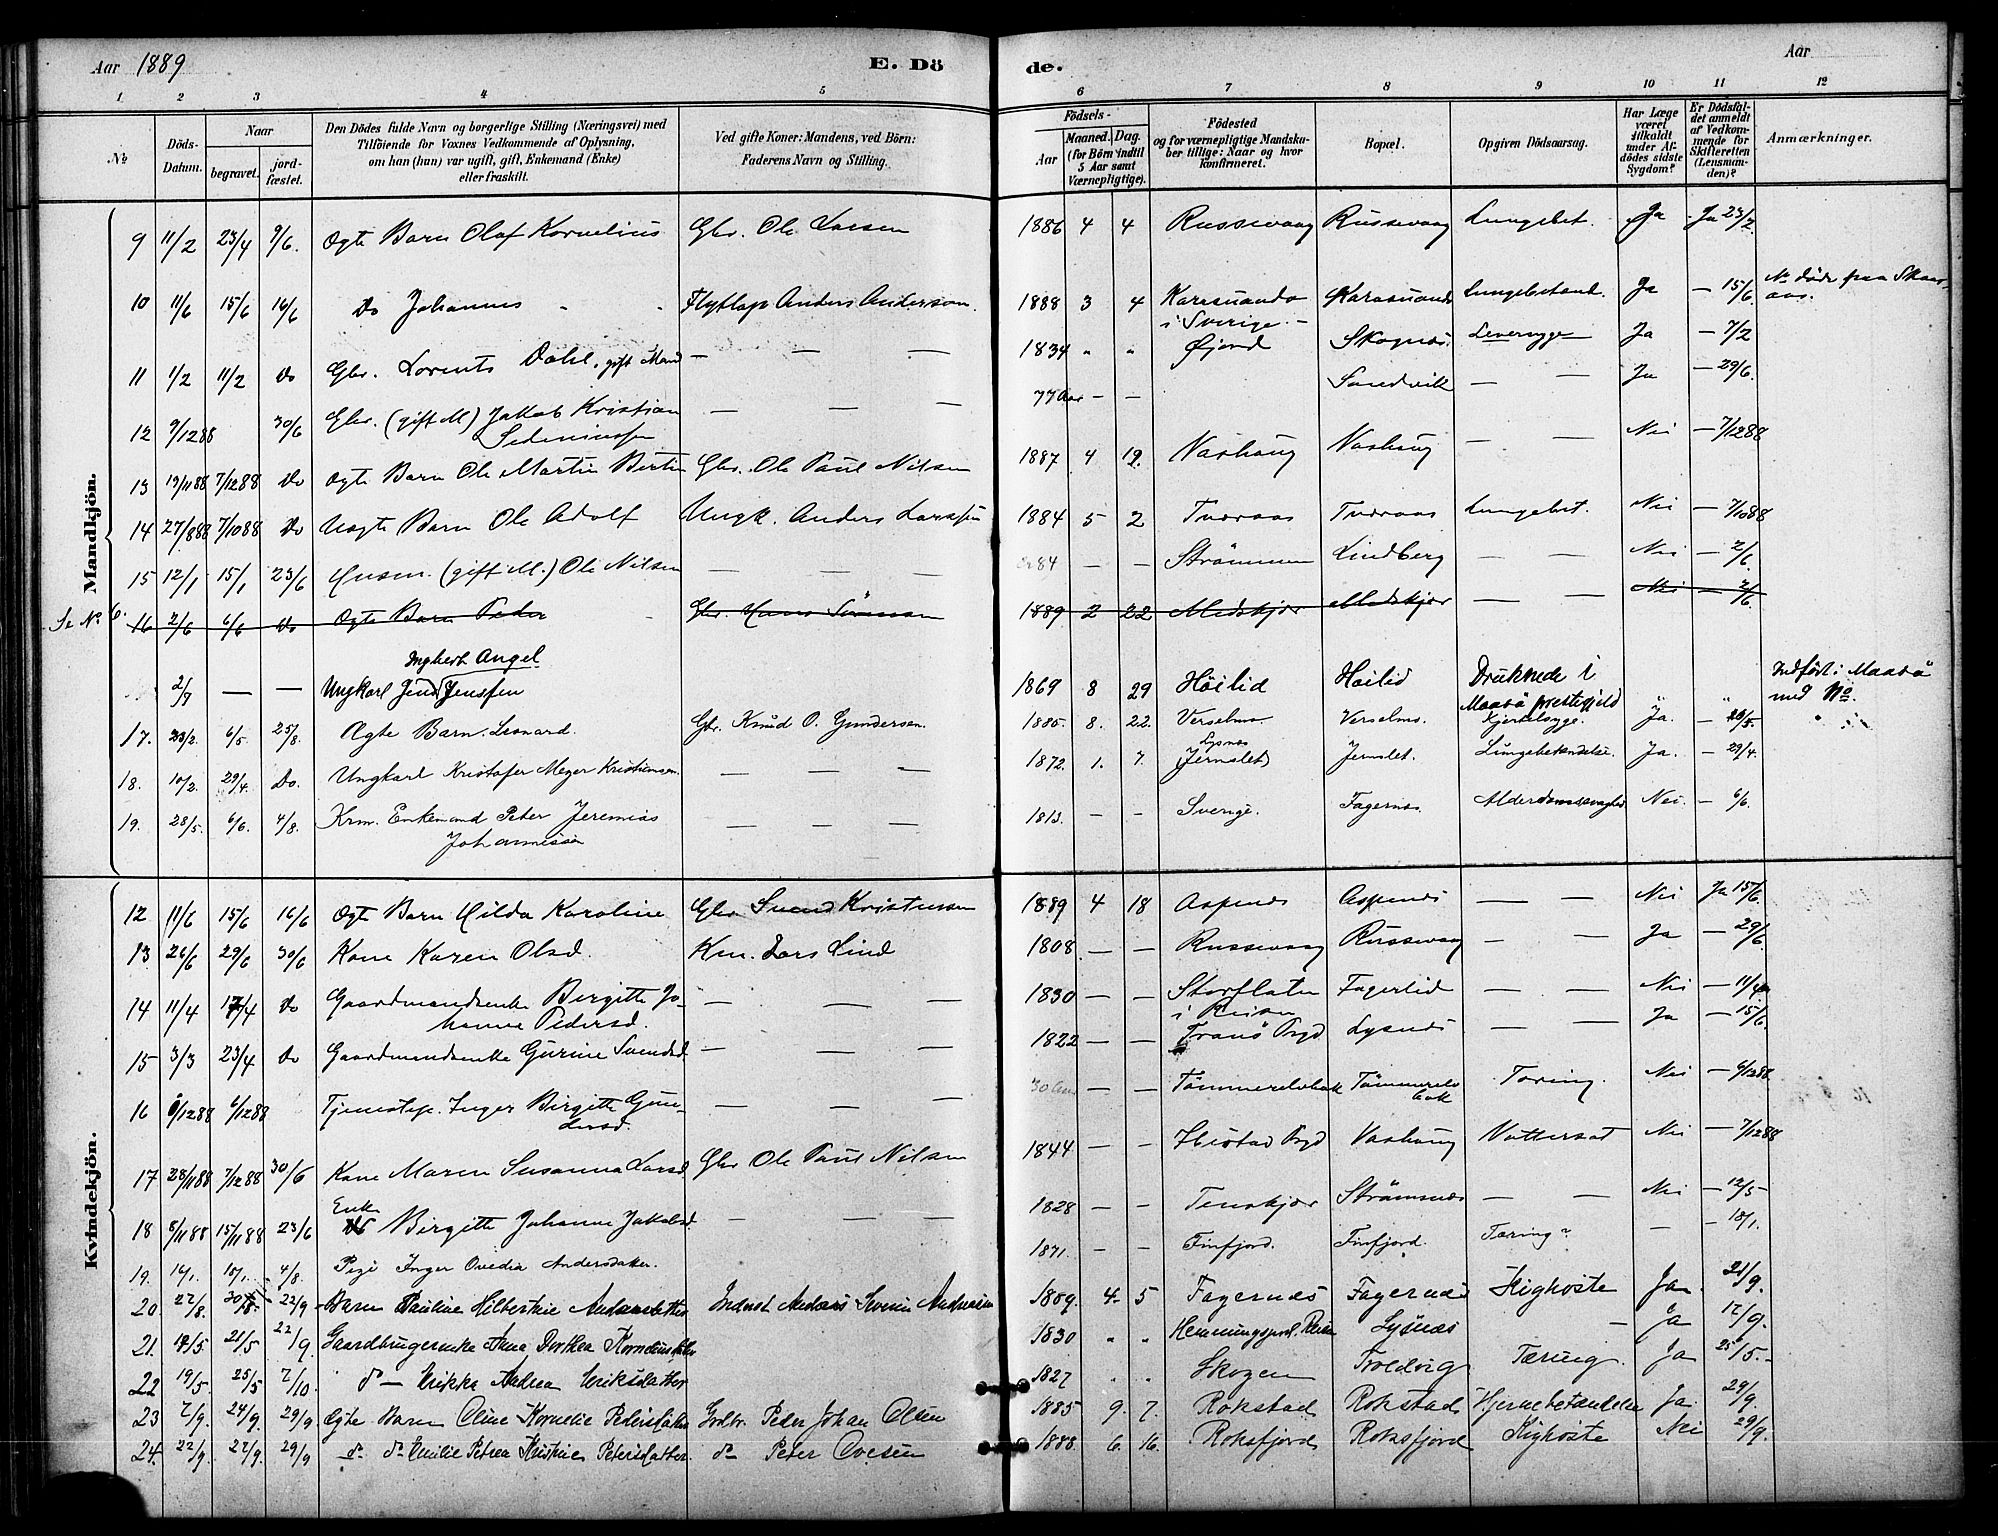 Aar 1889 E. Dö de. Aar
1 2 3 4 5 6 7 8 9 10 11 12
No Döds-Datum. Naar begravet. jord-fæstet. Den Dödes fulde Navn og borgerlige Stilling (Næringsvei) med Tilföiende for Voxnes Vedkommende af Oplysning, om han (hun) var ugift, gift, Enkemand (Enke) eller fraskilt. Ved gifte Koner: Mandens, ved Börn: Faderens Navn og Stilling. Födsels- Aar Maaned. Dag. (for Börn indtil 5 Aar samt Værnepligtige). Födested og for værnepligtige Mandskaber tillige: Naar og hvor konfirmeret. Bopæl. Opgiven Dödsaarsag. Har Læge været tilkaldt under Afdödes sidste Sygdom? Er Dödsfaldet anmeldt af Vedkommende for Skifteretten (Lensmanden)? Anmærkninger.
Mandkjön.
9 11/2 23/4 9/6. Ægte Barn Olaf Kornelius Gbr. Ole Larsen 1886 4 4 Russevaag Russevaag Lungebet. Ja Ja 23/2.
10 11/6 15/6 16/6 Do Johannes Flytlap Anders Anderson. 1888 3 4 Karesuando i Sverige. Karesuando Lungebetænd. Ja — 15/6. døde paa
11 1/2 11/2 Do Gbr. Lorents Dahl, gift Mand — — — 1834 " " Øjord Skognæs Leversyge Ja — 7/2
12 9/12 88 30/6 Gbr. (gift M) Jakob Kristian — — — 77 Aar — — Sandvik — — Ja — 29/6.
13 19/11 88 7/12 88 Do Ægte Barn Ole Martin Bertin Gbr. Ole Paul Nilsen 1887 4 19. Vashaug Vashaug — — Nei — 7/12 88
14 27/8 88 7/10 88 Do Uægte Barn Ole Adolf Ungk. Anders Larssen 1884 5 2 Tværaas Tværaas Lungebet. Nei — 7/10 88
15 12/1 15/1 23/6 Husm. (gift M.) Ole Nilsen — — — 84 — — Strömmen Lindberg — — Nei — 2/6.
Se No 6. 16 2/6 6/6 Do Ægte Barn Peder Gbr. Hans Simonsen 1889 2 22 Medskjær Medskjær — — Nei — 2/6.
Ingbert Angel
2/7 — — Ungkarl Jens Jenssen 1869 8 29 Höilid Höilid Druknede i Maasö prestegjeld " " Indført i Maasö med No
17. 23/2. 6/5. 25/8. Ægte Barn. Leonard. Gbr. Knud O. Gundersen. 1885. 8. 22. Verselmo. Verselmo. Kjertelsyge. Ja. — 29/5.
18. 10/2. 29/4. Do. Ungkarl Kristofer Meyer Kristiansen. — — — 1872. 1. 7. Lysnes Jernslet Jernslet. Lungebetændelse. Ja. — 29/4.
19. 28/5. 6/6. 4/8. Krm. Enkemand Peter Jeremias Johannissen — — — 1813. — — Sverige. Fagernæs. Alderdomssvaghed Nei. — 6/6.
Kvindekjön.
12 11/6 15/6 16/6 Ægte Barn Hilda Karoline Gbr Svend Kristensen 1889 4 18 Aspenes Aspenes — — Nei Ja 15/6.
13 26/6 29/6 30/6 Kone Karen Olsd. Krm. Lars Lind 1808. — — Russevaag Russevaag — — Ja — 29/6.
14 11/4 17/4 Do Gaardmandsenke Birgitte Johanne Pedersd. — — — 1830 — — Storslaten i Reisen Fagerlid — — Nei — 11/4
15 3/3 23/4 Do Gaardmandsenke Gurine Svendsd. — — — 1822 — — Tranö Prgd Lysnes — — Ja — 15/6.
16 6/12 88 6/12 88 Tjenestep. Inger Birgitte Gundersd. — — — 30 Aar — — Tömmerelvbak Tömmerelvbak Tæring. Nei — 6/12 88.
17 28/11 88 7/12 88 30/6 Kone Maren Susanna Larsd. Gbr Ole Paul Nilsen 1844 — — Ibestad Prgd Vashaug Vattersot Nei — 7/12 88
18 8/11 88 15/11 88 23/6 Enke Birgitte Johanne Jakobsd. — — — 1828 — — Tenskjær Strömsnes — — Nei — 12/5
19. 16/1. 18/1. 4/8. Pige Inger Ovedia Andersdatter. 1871. — — Finfjord. Finfjord. Tæring? — — 18/1.
20. 22/8. 30/8. 22/9 Barn Pauline Hilbertine Andreasdatter Inderst Andreas Severin Andreasen 1889. 4. 5 Fagernæs Fagernæs Kighoste Ja. 21/9.
21. 12/5 21/5 22/9. Gaardbrugerenke Anna Dorthea Korneliusdatter 1830 " " Lysnæs — Ja 12/9.
22 19/5. 25/5 7/10. do — Erikka Andrea Eriksdatter 1827 " " Skogen Troldvig Tæring. Ja 25/5.
23 7/9. 24/9. 29/9 Ægte Barn Oline Kornelie Pedersdatter Grdbr. Peter Johan Olsen 1885 9. 7. Rokstad Rokstad Hjernebetændelse Ja. 29/9.
24. 22/9. 27/9. 29/9 do. do Emilie Petrea Kristine Petersdatter. do Peter Ovesen 1888. 6. 16. Roksfjord Roksfjord Kighoste Nei 29/9.